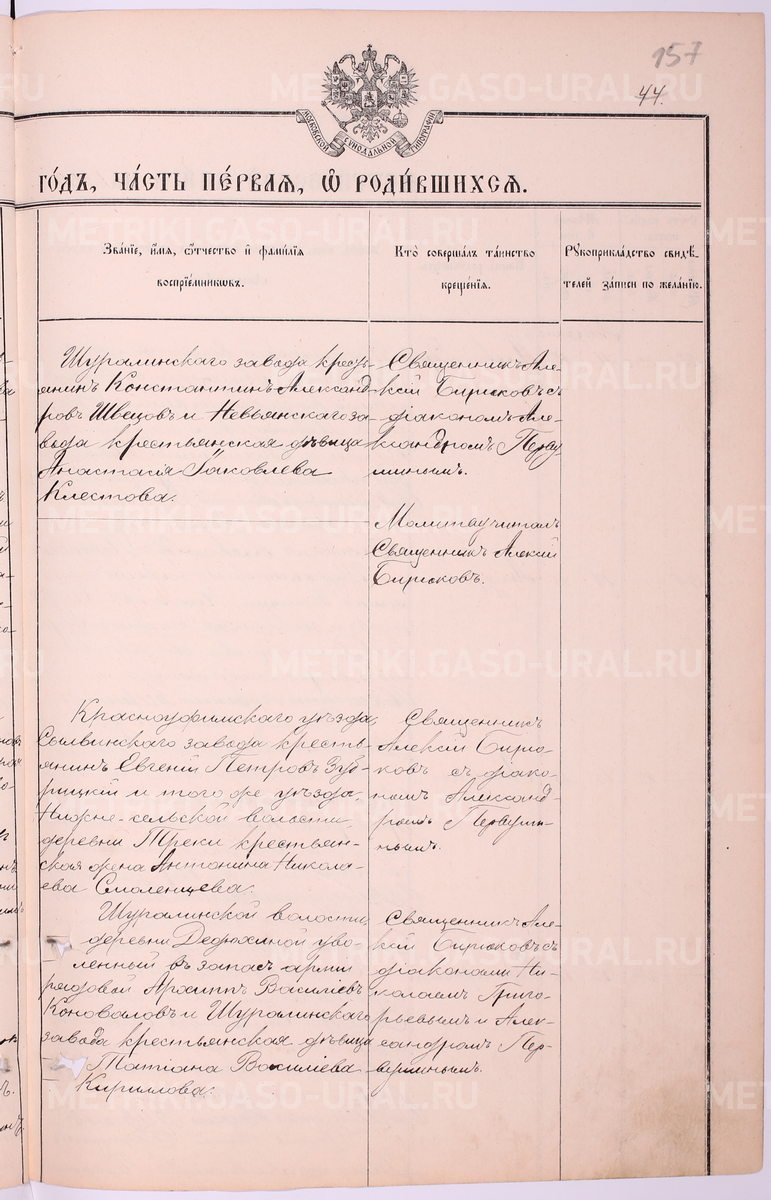 157
44.
МОСКОВСКОЙ СѴНОДАЛЬНОЙ ТИПОГРАФІИ
го́дъ, ча́сть пе́рваѧ, ѡ҆ роди́вшихсѧ.
Зва́нїе, и҆́мѧ, ѻ҆́тчество и҆ фами́лїѧ
воспрїе́мникѡвъ.
Кто̀ соверша́лъ та́инство
креще́нїѧ.
Рꙋкоприкла́дство свидѣ́-
телей за́писи по жела́нїю.
Шуралинскаго завода кресть-
янинъ Константинъ Александ-
ровъ Швецовъ и Невьянскаго за
вода крестьянская дѣвица
Анастасія Яковлева
Клестова.
Священникъ Але-
ксій Бирюковъ съ
діакономъ Але-
ксандромъ Перву
шинымъ.
Молитву читалъ
Священникъ Алексій
Бирюковъ.
Красноуфимскаго уѣзда,
Сылвинскаго завода кресть-
янинъ Евгеній Петровъ Зуб-
рицкій и того же уѣзда,
Нижне-сельской волости
деревни Треки крестьян-
ская жена Антонина Никола-
ева Смоленцева.
Священникъ
Алексій Бирю-
ковъ съ діако-
номъ Александ-
ромъ Первуши-
нымъ.
Шуралинской волости,
деревни Дедюхиной уво-
ленный въ запасъ арміи
рядовой Архиппъ Василіевъ
Коноваловъ и Шуралинскаго
завода крестьянская дѣвица
Татіана Василіева
Кириллова.
Священникъ Але-
ксій Бирюковъ съ
діаконами Ни-
колаемъ Григо-
рьевымъ и Алек-
сандромъ Пер-
вушинымъ.
METRIKI.GASO-URAL.RU